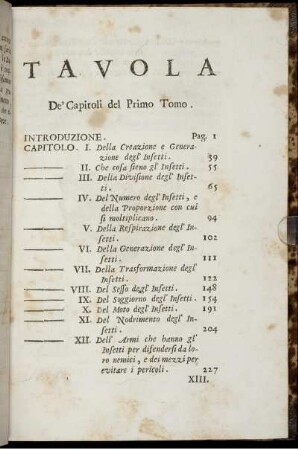 TAVOLA
De' Capitoli del Primo Tomo.
INTRODUZIONE. Pag. 1
CAPITOLO. I. Della Creazione e Genera-
zione degl' Insetti. 39
II. Che cosa sieno gl' Insetti. 55
III. Della Divisione degl' Inset-
ti. 65
IV. Del Numero degl' Insetti, e
della Proporzione con cui
si moltiplicano. 94
V. Della Respirazione degl' In-
setti. 102
VI. Della Generazione degl' In-
setti. 111
VII. Della Trasformazione degl'
Insetti. 122
VIII. Del Sesso degl' Insetti. 148
IX. Del Soggiorno degl' Insetti. 154
X. Del Moto degl' Insetti. 191
XI. Del Nodrimento degl' In-
setti. 204
XII. Dell' Armi che hanno gl'
Insetti per difendersi da lo-
ro nemici, e dei mezzi per
evitare i pericoli. 227
XIII.